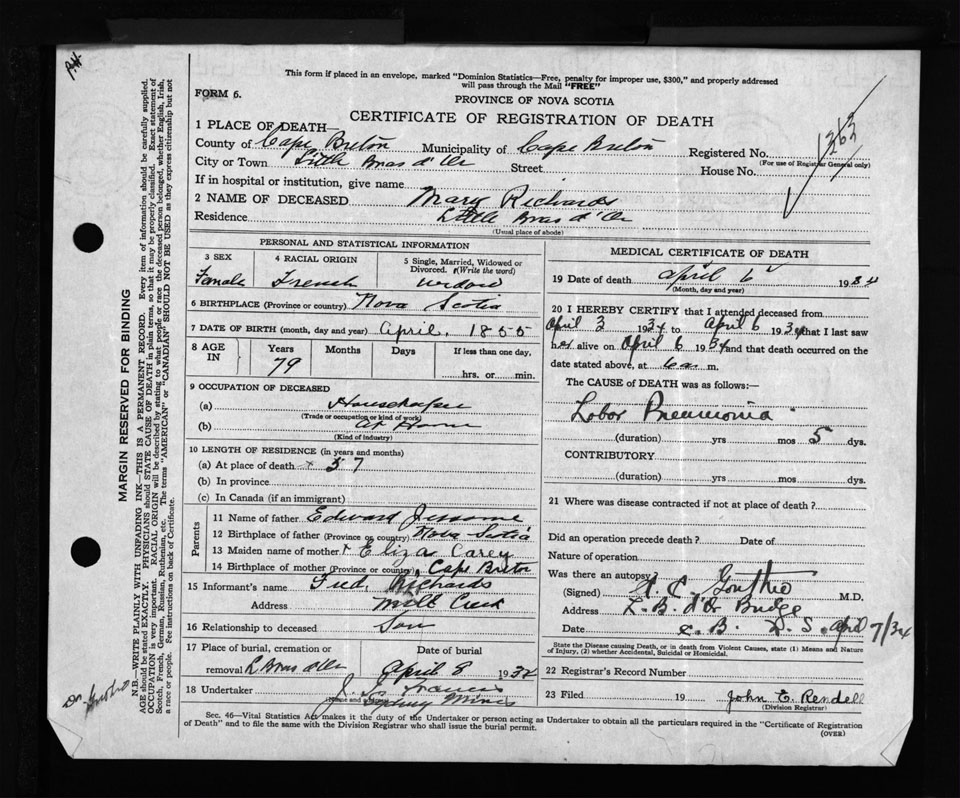 This form if placed in an envelope, marked "Dominion Statistics—Free, penalty for improper use, $300," and properly addressed
will pass through the Mail "FREE"
FORM 6.
PROVINCE OF NOVA SCOTIA
CERTIFICATE OF REGISTRATION OF DEATH
1 PLACE OF DEATH—
County of Cape Breton Municipality of Cape Breton Registered No. 1363
(For use of Registrar General only)
City or Town Little Bras d'Or Street House No.
If in hospital or institution, give name
2 NAME OF DECEASED Mary Richards
Residence Little Bras d'Or
(Usual place of abode)
PERSONAL AND STATISTICAL INFORMATION
3 SEX 4 RACIAL ORIGIN 5 Single, Married, Widowed or Divorced. (Write the word)
Female French Widow
6 BIRTHPLACE (Province or country) Nova Scotia
7 DATE OF BIRTH (month, day and year) April, 1855
8 AGE IN Years Months Days If less than one day,
79 hrs. or min.
9 OCCUPATION OF DECEASED
(a) Housekeeper
(Trade or occupation or kind of work)
(b) At Home
(Kind of industry)
10 LENGTH OF RESIDENCE (in years and months)
(a) At place of death 57
(b) In province
(c) In Canada (if an immigrant)
Parents
11 Name of father Edward
12 Birthplace of father (Province or country) Nova Scotia
13 Maiden name of mother Eliza Carey
14 Birthplace of mother (Province or country) Cape Breton
15 Informant's name Fred Richards
Address Mill Creek
16 Relationship to deceased Son
17 Place of burial, cremation or removal L Bras d'Or
Date of burial
April 8 1934
18 Undertaker
(name and address) Sydney Mines
MEDICAL CERTIFICATE OF DEATH
19 Date of death April 6 1934
(Month, day and year)
20 I HEREBY CERTIFY that I attended deceased from
April 3 1934 to April 6 1934 that I last saw
her alive on April 6 1934 and that death occurred on the
date stated above, at 6 a m.
The CAUSE of DEATH was as follows:—
Lobar Pneumonia
(duration) yrs mos 5 dys.
CONTRIBUTORY
(duration) yrs mos dys.
21 Where was disease contracted if not at place of death?
Did an operation precede death? Date of
Nature of operation
Was there an autopsy?
(Signed) M.D.
Address L. B. d'Or Bridge
Date C. B. N. S. April 7/34
State the Disease causing Death, or in death from Violent Causes, state (1) Means and Nature
of Injury, (2) whether Accidental, Suicidal or Homicidal.
22 Registrar's Record Number
23 Filed 19 John E. Rendell
(Division Registrar)
Sec. 46—Vital Statistics Act makes it the duty of the Undertaker or person acting as Undertaker to obtain all the particulars required in the "Certificate of Registration
of Death" and to file the same with the Division Registrar who shall issue the burial permit.
(OVER)
MARGIN RESERVED FOR BINDING
N.B.—WRITE PLAINLY WITH UNFADING INK—THIS IS A PERMANENT RECORD. Every item of information should be carefully supplied.
AGE should be stated EXACTLY. PHYSICIANS should STATE CAUSE OF DEATH in plain terms, so that it may be properly classified. Exact statement of
OCCUPATION is very important. RACIAL ORIGIN will be described by stating to what people or race the deceased person belonged, whether English, Irish,
Scotch, French, German, Russian, Ruthenian, etc. The terms "AMERICAN" or "CANADIAN" SHOULD NOT BE USED as they express citizenship but not
a race or people. See instructions on back of Certificate.